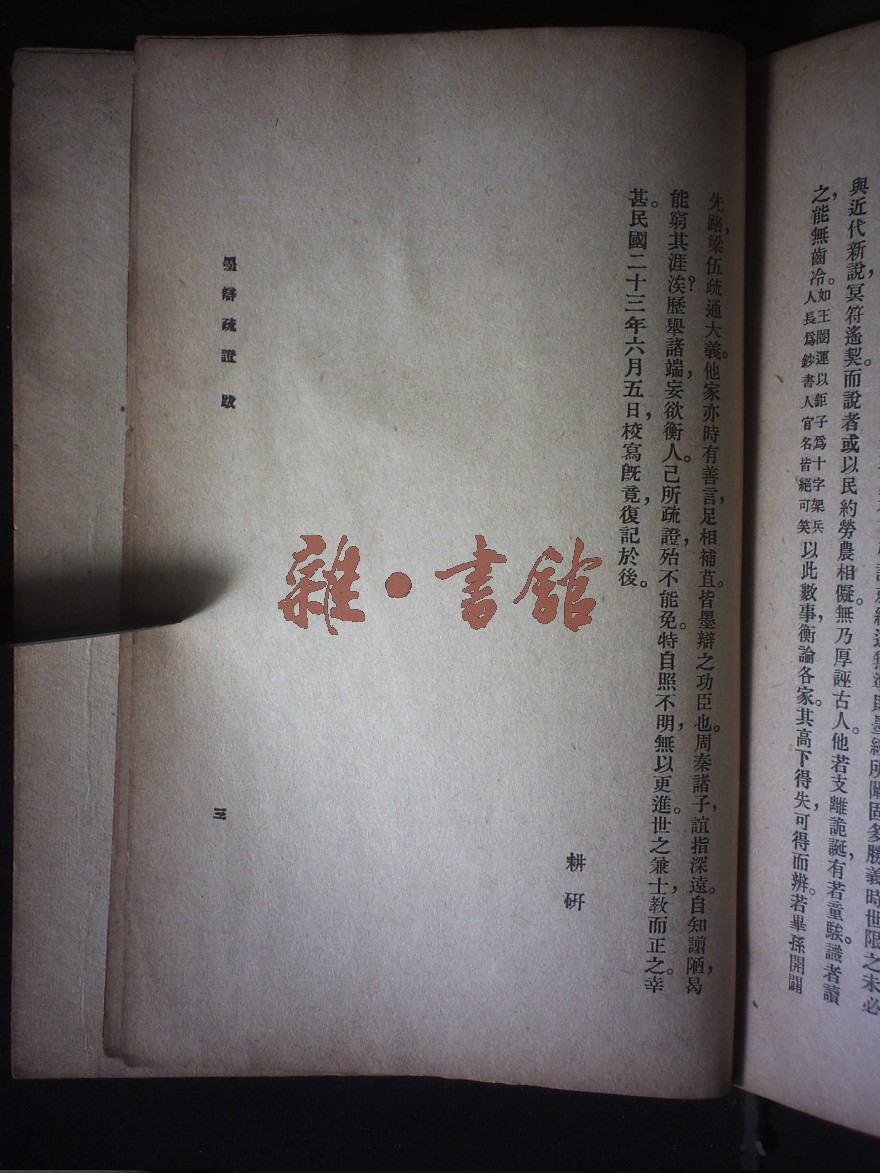 固多勝義時世限之未必
與近代新說，冥符遙契。而說者或以民約勞農相儗。無乃厚誣古人。他若支離詭誕，有若童騃。識者讀
之，能無齒冷。如王闓運以鉅子爲十字架兵
人長爲鈔書人官名皆絕可笑以此數事，衡論各家。其高下得失，可得而辨。若畢孫開闢
先路，梁伍疏通大義。他家亦時有善言，足相補苴。皆墨辯之功臣也。周秦諸子，誼指深遠。自知謭陋，曷
能窮其涯涘？歷舉諸端，妄欲衡人。己所疏證，殆不能免。特自照不明，無以更進。世之兼士，教而正之。幸
甚。民國二十三年六月五日，校寫旣竟，復記於後。
耕研
墨辯疏證 跋
三
雜·書館